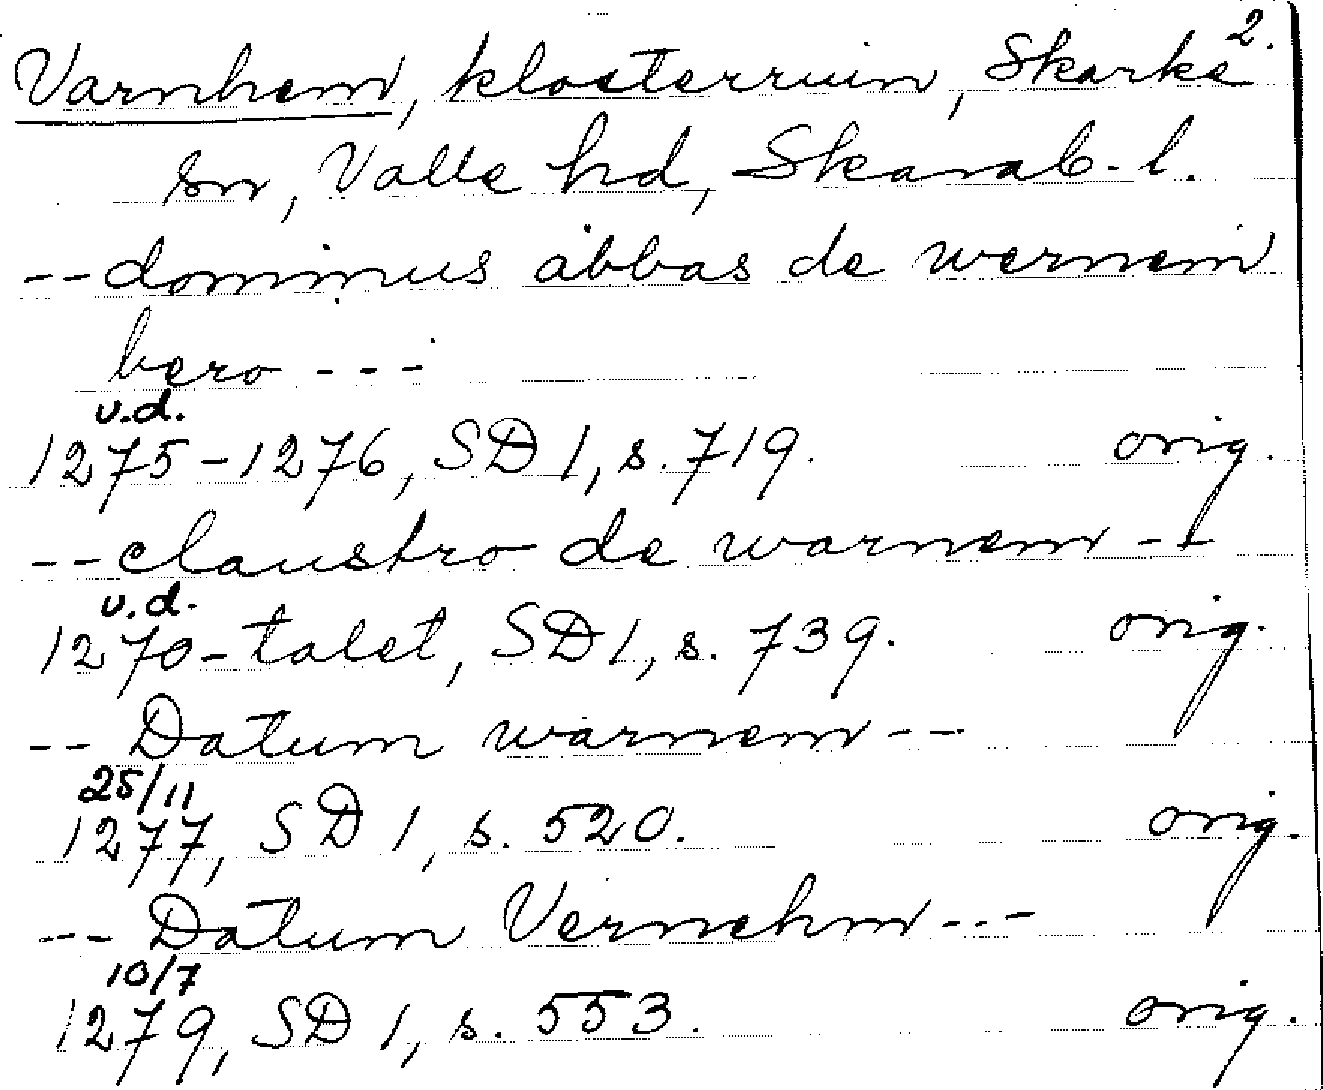 2.
Varnhem, klosterruin, Skarke
sn, Valle hd, Skarab. l.
-- dominus abbas de wernem
bero ---
u.d.
1275-1276, SD 1, s. 719. orig.
-- claustro de warnem --
u.d.
1270-talet, SD 1, s. 739. orig.
-- Datum warnem --
25/11
1277, SD 1, s. 520. orig.
-- Datum Vernehm ---
10/7
1279, SD 1, s. 553. orig.